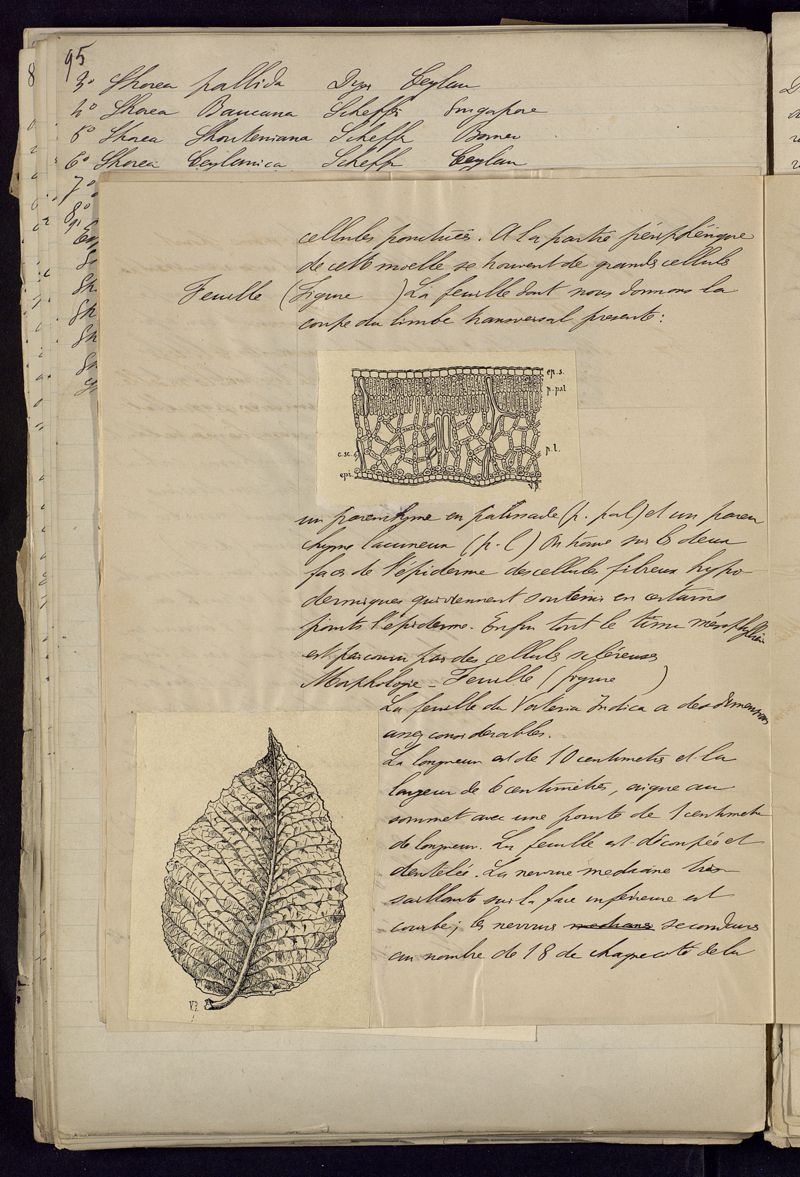 95
3º Shorea pallida Dyer Ceylan
4º Shorea Bancana Scheff. Singapore
5º Shorea Shouteniana Scheff Borneo
6º Shorea Ceylanica Scheff Ceylan
7º
8º
cellules ponctuées. A la partie périphérique
de cette moelle se trouvent de grandes cellules
Feuille (figure ) La feuille dont nous donnons la
coupe du limbe transversal presente:
ep. s.
p. pal
c. sc.
p. l.
epi
un parenchyme en palissade (p. pal) et un paren
chyme lacuneux (p. l) On trouve sur les deux
faces de l'épiderme des cellules fibreuses hypo-
dermiques qui viennent soutenir en certains
points l'épiderme. Enfin tout le tissu mésophyllien
est parcouru par des cellules scléreuses
Morphologie - Feuille (figure )
La feuille du Vateria Indica a des dimensions
assez considerables.
La longueur est de 10 centimetres et la
largeur de 6 centimètres, aigue au
sommet avec une pointe de 1 centimetre
de longueur. La feuille est découpée et
dentelée. La nervure mediane très
saillante sur la face inférieure est
courbe; les nervures medianes secondaires
au nombre de 18 de chaque coté de la